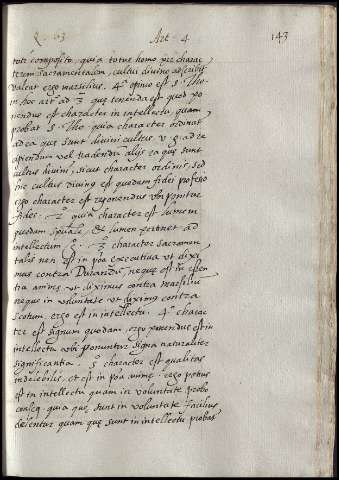 Q. 63 Art. 4. 143
toti composito, quia totus homo per charac
terem sacramentalem, cultui divino adscribit
valeat ergo marsilius. 4ª opinio est S. Tho.
in hoc art. ad 3 que tenenda est quod po
nendus est character in intellectu, quam
probat S. Tho. quia character ordinat
ad ea que sunt divini cultus. v. g. ad re
cipiendum vel tradendum alijs ea que sunt
cultus divini, sicut character ordinis, sed
hic cultus divinus est quedam fidei professio
ergo character est reponendus ubi ponitur
fides. 2º quia character est lumen
quodam spirituale, & lumen pertinet ad
intellectum 3º character sacramen
talis non est in pora executiva ut dixi
mus contra Durandum, neque est in essen
tia anime, ut diximus contra marsiliu
neque in voluntate ut diximus contra
scotum, ergo est in intellectu. 4º charac
ter est signum quodam, ergo ponendus est in
intellectu ubi ponuntur signa naturaliter
significantia. 5º character est qualitas
indelebilis, et est in pora anime. ergo potius
est in intellectu quam in voluntate probo
conseq. quia que sunt in voluntate facilius
delentur quam que sunt in intellectu probat